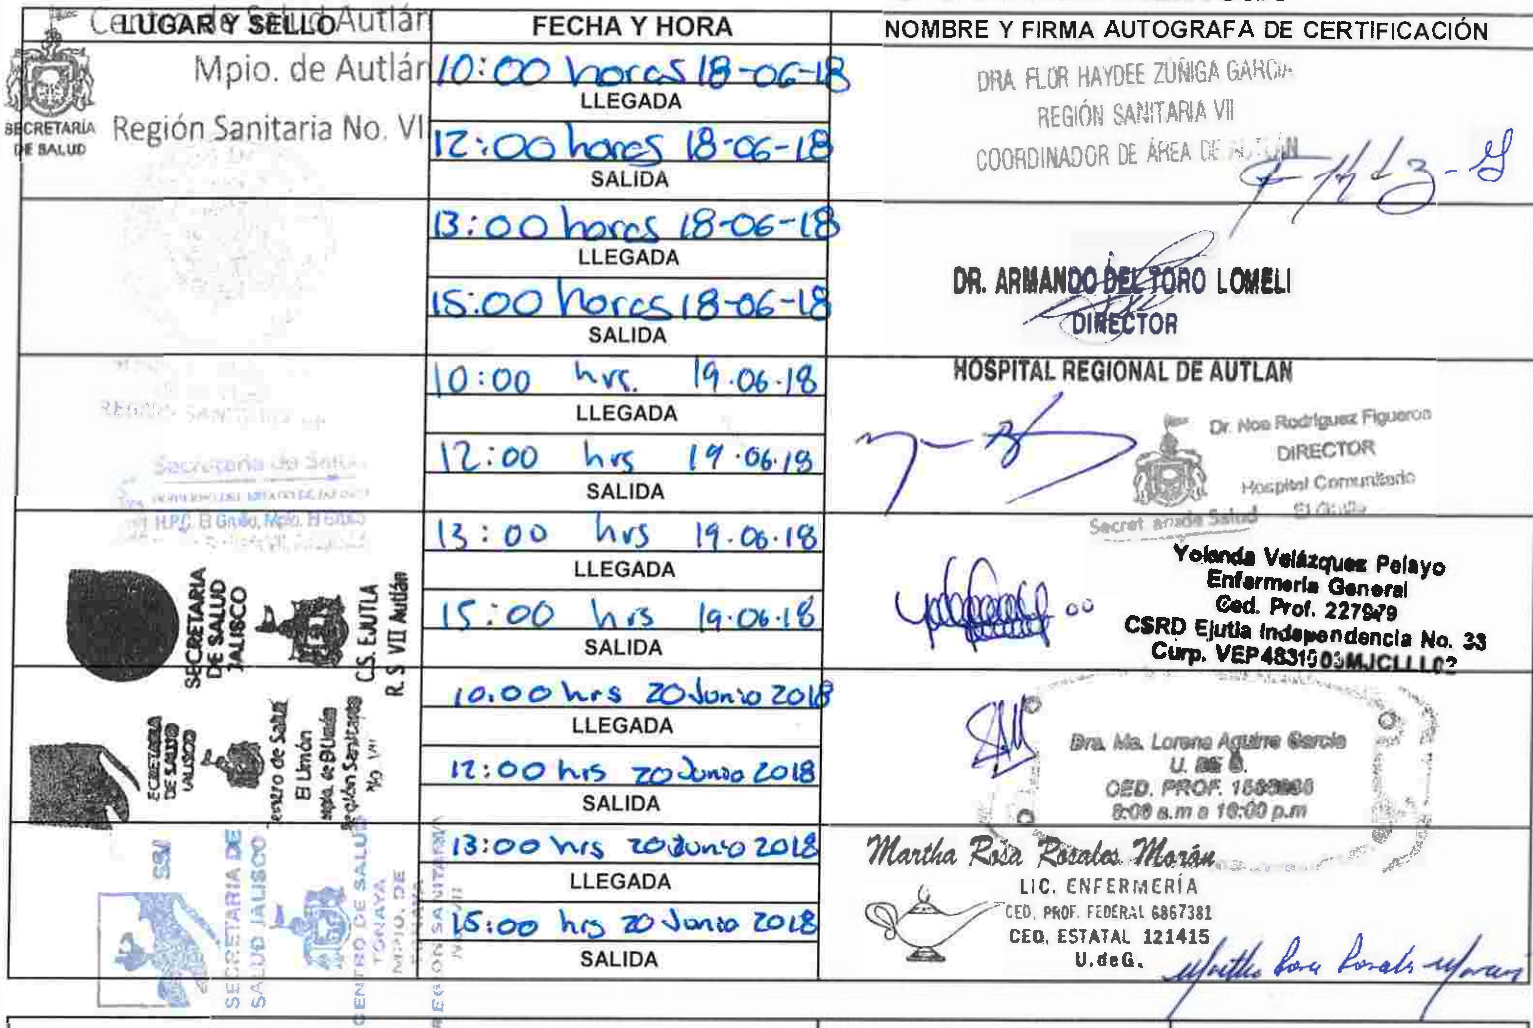 LUGAR Y SELLO
FECHA Y HORA
NOMBRE Y FIRMA AUTOGRAFA DE CERTIFICACIÓN
Centro de Salud Autlán
Mpio. de Autlán
Región Sanitaria No. VI
SECRETARÍA
DE SALUD
10:00 horas 18-06-18
LLEGADA
12:00 horas 18-06-18
SALIDA
DRA. FLOR HAYDEE ZUÑIGA GARCIA
REGIÓN SANITARIA VII
COORDINADOR DE ÁREA DE AUTLÁN
13:00 horas 18-06-18
LLEGADA
15:00 horas 18-06-18
SALIDA
DR. ARMANDO DEL TORO LOMELI
DIRECTOR
HOSPITAL REGIONAL DE AUTLAN
Secretaria de Salud
H.P.C. El Grullo, Mpio. El Grullo
10:00 hrs. 19.06.18
LLEGADA
12:00 hrs 19.06.18
SALIDA
Dr. Noe Rodriguez Figueroa
DIRECTOR
Hospital Comunitario
El Grullo
SECRETARIA
DE SALUD
JALISCO
C.S. EJUTLA
R. S VII Autlán
13:00 hrs 19.06.18
LLEGADA
15:00 hrs 19.06.18
SALIDA
Yolanda Velázquez Pelayo
Enfermería General
Ced. Prof. 227979
CSRD Ejutla Independencia No. 33
Curp.
ECRETARIA
DE SALUD
JALISCO
entro de Salud
El Limón
Mpio. de El Limón
Región Sanitaria
No. VII
10:00 hrs 20 Junio 2018
LLEGADA
12:00 hrs 20 Junio 2018
SALIDA
Dra. Ma. Lorena Aguirre García
U. DE G.
CED. PROF.
8:00 a.m a 16:00 p.m
SSJ
SECRETARIA DE
SALUD JALISCO
CENTRO DE SALUD
TONAYA
MPIO. DE
TONAYA
REGION SANITARIA
No. VII
13:00 hrs 20 Junio 2018
LLEGADA
15:00 hrs 20 Junio 2018
SALIDA
Martha Rosa Rosales Morán
LIC. ENFERMERÍA
CED. PROF. FEDERAL 6867381
CED. ESTATAL 121415
U.deG.
Martha Rosa Rosales Moran